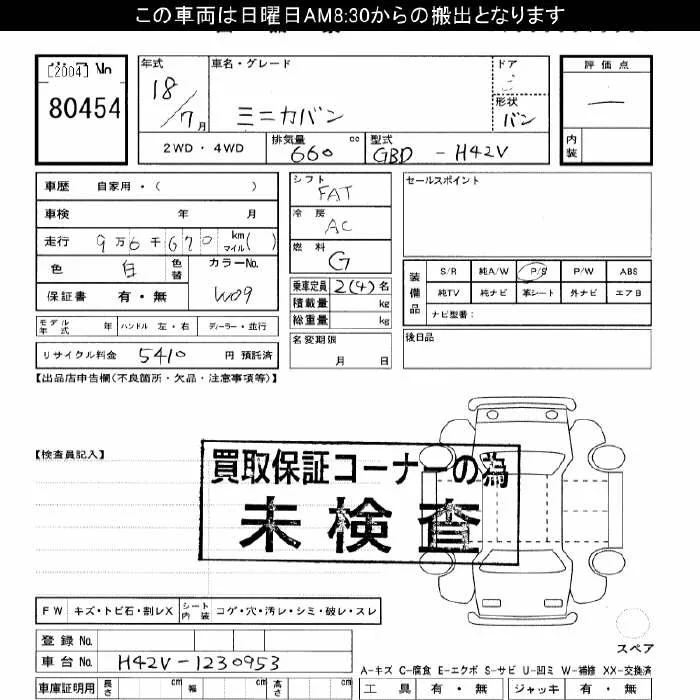 この車両は日曜日AM8:30からの搬出となります
[2004] No
80454
年式 車名・グレード ドア 評価点
18/7月 ミニカバン 形状 バン 内装
2WD・4WD 排気量 660 cc 型式 GBD - H42V
車歴 自家用・( )
車検 年 月
走行 9万6千670 km マイル( )
色 白 色替 カラーNo. W09
保証書 有・無
シフト FAT
冷房 AC
燃料 G
乗車定員 2(4)名
積載量 kg
総重量 kg
セールスポイント
装備品 S/R 純A/W P/S P/W ABS
純TV 純ナビ 革シート 外ナビ エアB
ナビ型番:
モデル年式 年 ハンドル 左・右 ディーラー・並行
名変期限 月 日
後日品
リサイクル料金 5410 円 預託済
【出品店申告欄(不良箇所・欠品・注意事項等)】
【検査員記入】
買取保証コーナーの為
未検査
FW キズ・トビ石・割レX シート内装 コゲ・穴・汚レ・シミ・破レ・スレ
スペア
登録 No.
車台 No. H42V-1230953
A-キズ C-腐食 E-エクボ S-サビ U-凹ミ W-補修 XX-交換済
車庫証明用 長さ cm 幅 cm 高さ cm 工具 有・無 ジャッキ 有・無